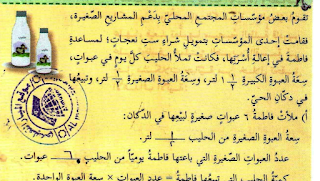 تقومُ بعضُ مؤسّساتِ المجتمعِ المحليِّ بِدَعْمِ المشاريعِ الصَّغيرة،
فقامتْ إحدى المؤسّساتِ بتمويلِ شراءِ ستِّ نعجاتٍ؛ لمساعدةِ
فاطمةَ في إعالةِ أُسْرَتِها، فكانتْ تملأُ الحليبَ كلَّ يومٍ في عبواتٍ،
سِعَةُ العبوةِ الكبيرةِ لتر، وسِعَةُ العبوةِ الصغيرةِ لتر، وتبيعُها
في دكّانِ الحيّ.
أ) ملأتْ فاطمةُ ٦ عبواتٍ صغيرةٍ لبَيْعِها في الدُّكّان:
سِعةُ العبوةِ الصغيرةِ من الحليبِ لتر.
عددُ العبواتِ الصَّغيرةِ التي باعتها فاطمةُ يوميًّا من الحليبِ ٦ عبوات.
كميّةُ الحليبِ التي تبيعُها فاطمةُ = عدد العبوات × سعة العبوة الواحدة.